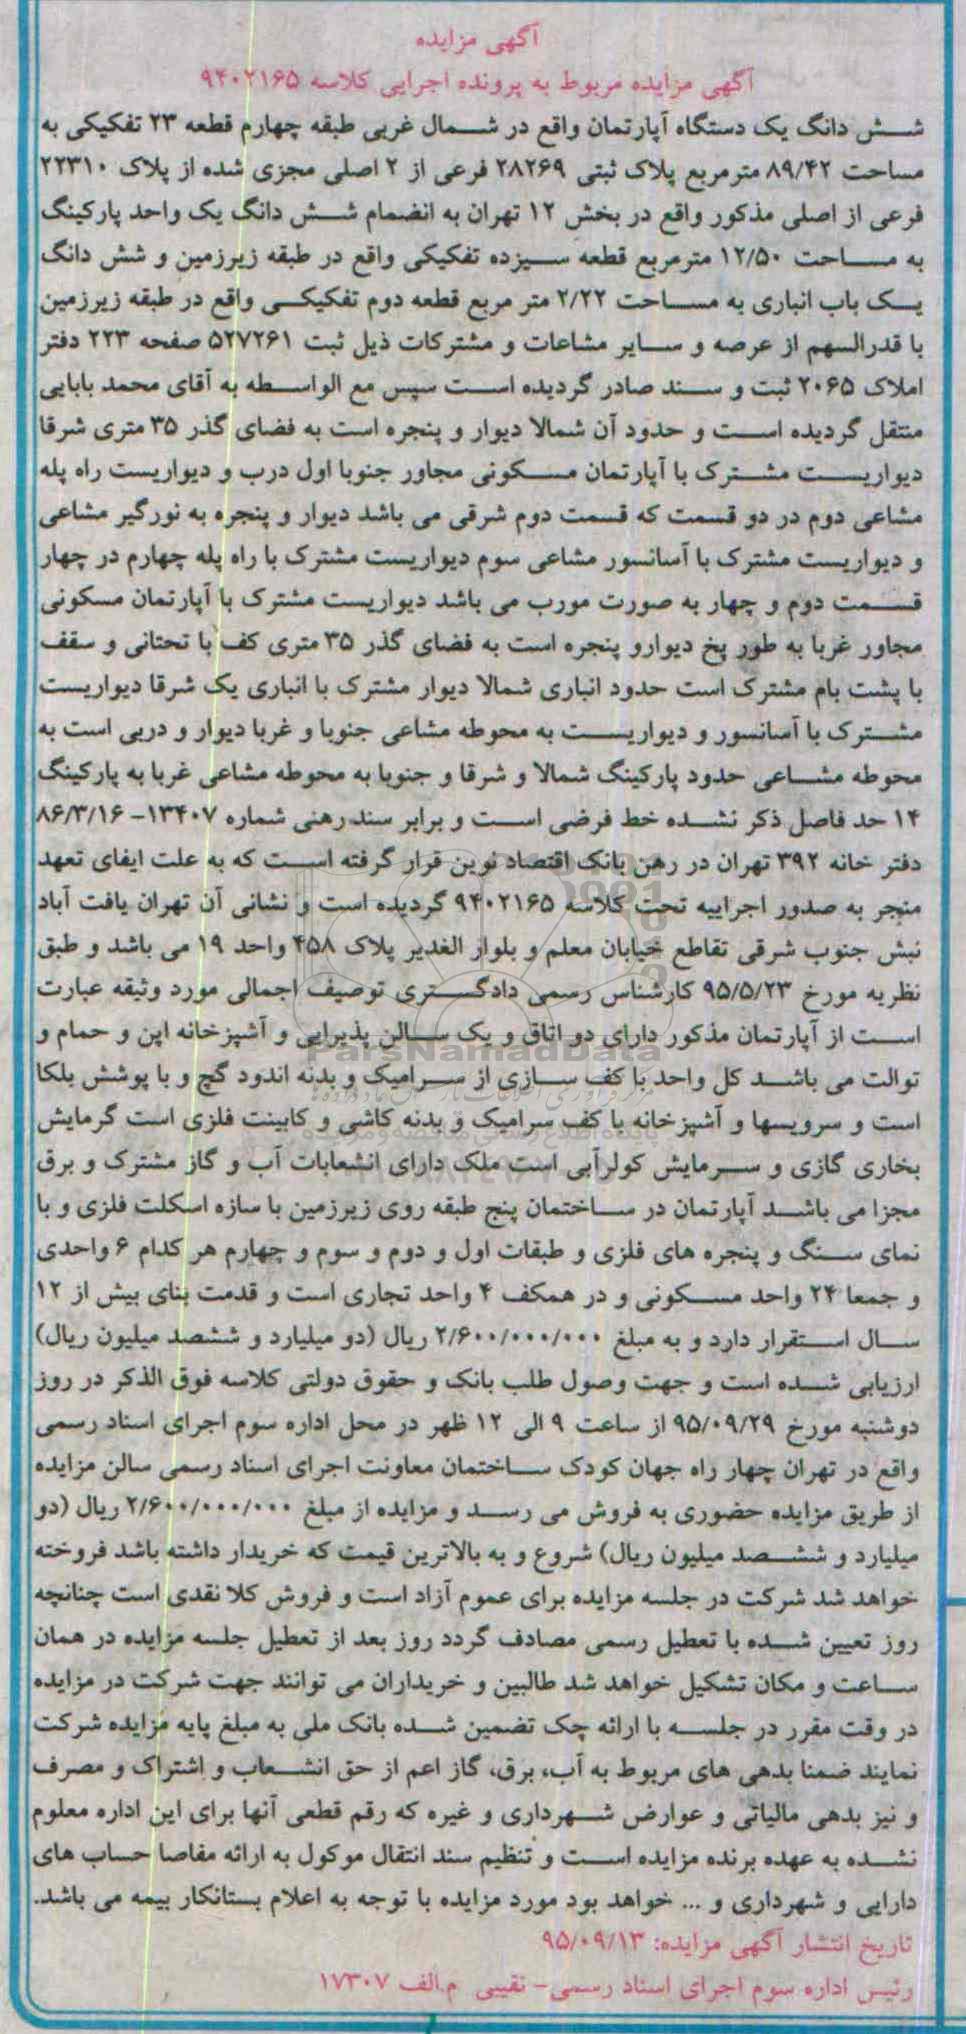 آگهی مزایده
آگهی مزایده مربوط به پرونده اجرایی کلاسه ۹۴۰۲۱۶۵
شش دانگ یک دستگاه آپارتمان واقع در شمال غربی طبقه چهارم قطعه ۲۳ تفکیکی به
مساحت ۸۹/۴۲ مترمربع پلاک ثبتی ۲۸۲۶۹ فرعی از ۲ اصلی مجزی شده از پلاک ۲۲۳۱۰
فرعی از اصلی مذکور واقع در بخش ۱۲ تهران به انضمام شش دانگ یک واحد پارکینگ
به مساحت ۱۲/۵۰ مترمربع قطعه سیزده تفکیکی واقع در طبقه زیرزمین و شش دانگ
یک باب انباری به مساحت ۲/۲۲ متر مربع قطعه دوم تفکیکی واقع در طبقه زیرزمین
با قدرالسهم از عرصه و سایر مشاعات و مشترکات ذیل ثبت ۵۲۷۲۶۱ صفحه ۲۲۳ دفتر
املاک ۲۰۶۵ ثبت و سند صادر گردیده است سپس مع الواسطه به آقای محمد بابایی
منتقل گردیده است و حدود آن شمالا دیوار و پنجره است به فضای گذر ۳۵ متری شرقا
دیواریست مشترک با آپارتمان مسکونی مجاور جنوبا اول درب و دیواریست راه پله
مشاعی دوم در دو قسمت که قسمت دوم شرقی می باشد دیوار و پنجره به نورگیر مشاعی
و دیواریست مشترک با آسانسور مشاعی سوم دیواریست مشترک با راه پله چهارم در چهار
قسمت دوم و چهار به صورت مورب می باشد دیواریست مشترک با آپارتمان مسکونی
مجاور غربا به طور پخ دیوارو پنجره است به فضای گذر ۳۵ متری کف با تحتانی و سقف
با پشت بام مشترک است حدود انباری شمالا دیوار مشترک با انباری یک شرقا دیواریست
مشترک با آسانسور و دیواریست به محوطه مشاعی جنوبا و غربا دیوار و دربی است به
محوطه مشاعی حدود پارکینگ شمالا و شرقا و جنوبا به محوطه مشاعی غربا به پارکینگ
۱۴ حد فاصل ذکر نشده خط فرضی است و برابر سند رهنی شماره ۱۳۴۰۷- ۸۶/۳/۱۶
دفتر خانه ۳۹۲ تهران در رهن بانک اقتصاد نوین قرار گرفته است که به علت ایفای تعهد
منجر به صدور اجراییه تحت کلاسه ۹۴۰۲۱۶۵ گردیده است و نشانی آن تهران یافت آباد
نبش جنوب شرقی تقاطع خیابان معلم و بلوار الغدیر پلاک ۴۵۸ واحد ۱۹ می باشد و طبق
نظریه مورخ ۹۵/۵/۲۳ کارشناس رسمی دادگستری توصیف اجمالی مورد وثیقه عبارت
است از آپارتمان مذکور دارای دو اتاق و یک سالن پذیرایی و آشپزخانه اپن و حمام و
توالت می باشد کل واحد با کف سازی از سرامیک و بدنه اندود گچ و با پوشش بلکا
است و سرویسها و آشپزخانه با کف سرامیک و بدنه کاشی و کابینت فلزی است گرمایش
بخاری گازی و سرمایش کولرآبی است ملک دارای انشعابات آب و گاز مشترک و برق
مجزا می باشد آپارتمان در ساختمان پنج طبقه روی زیرزمین با سازه اسکلت فلزی و با
نمای سنگ و پنجره های فلزی و طبقات اول و دوم و سوم و چهارم هر کدام ۶ واحدی
و جمعا ۲۴ واحد مسکونی و در همکف ۴ واحد تجاری است و قدمت بنای بیش از ۱۲
سال استقرار دارد و به مبلغ ۲/۶۰۰/۰۰۰/۰۰۰ ریال (دو میلیارد و ششصد میلیون ریال)
ارزیابی شده است و جهت وصول طلب بانک و حقوق دولتی کلاسه فوق الذکر در روز
دوشنبه مورخ ۹۵/۰۹/۲۹ از ساعت ۹ الی ۱۲ ظهر در محل اداره سوم اجرای اسناد رسمی
واقع در تهران چهار راه جهان کودک ساختمان معاونت اجرای اسناد رسمی سالن مزایده
از طریق مزایده حضوری به فروش می رسد و مزایده از مبلغ ۲/۶۰۰/۰۰۰/۰۰۰ ریال (دو
میلیارد و ششصد میلیون ریال) شروع و به بالاترین قیمت که خریدار داشته باشد فروخته
خواهد شد شرکت در جلسه مزایده برای عموم آزاد است و فروش کلا نقدی است چنانچه
روز تعیین شده با تعطیل رسمی مصادف گردد روز بعد از تعطیل جلسه مزایده در همان
ساعت و مکان تشکیل خواهد شد طالبین و خریداران می توانند جهت شرکت در مزایده
در وقت مقرر در جلسه با ارائه چک تضمین شده بانک ملی به مبلغ پایه مزایده شرکت
نمایند ضمنا بدهی های مربوط به آب، برق، گاز اعم از حق انشعاب و اشتراک و مصرف
و نیز بدهی مالیاتی و عوارض شهرداری و غیره که رقم قطعی آنها برای این اداره معلوم
نشده به عهده برنده مزایده است و تنظیم سند انتقال موکول به ارائه مفاصا حساب های
دارایی و شهرداری و ... خواهد بود مورد مزایده با توجه به اعلام بستانکار بیمه می باشد.
تاریخ انتشار آگهی مزایده: ۹۵/۰۹/۱۳
رئیس اداره سوم اجرای اسناد رسمی- نقیبی م.الف ۱۷۳۰۷
ParsNamadData